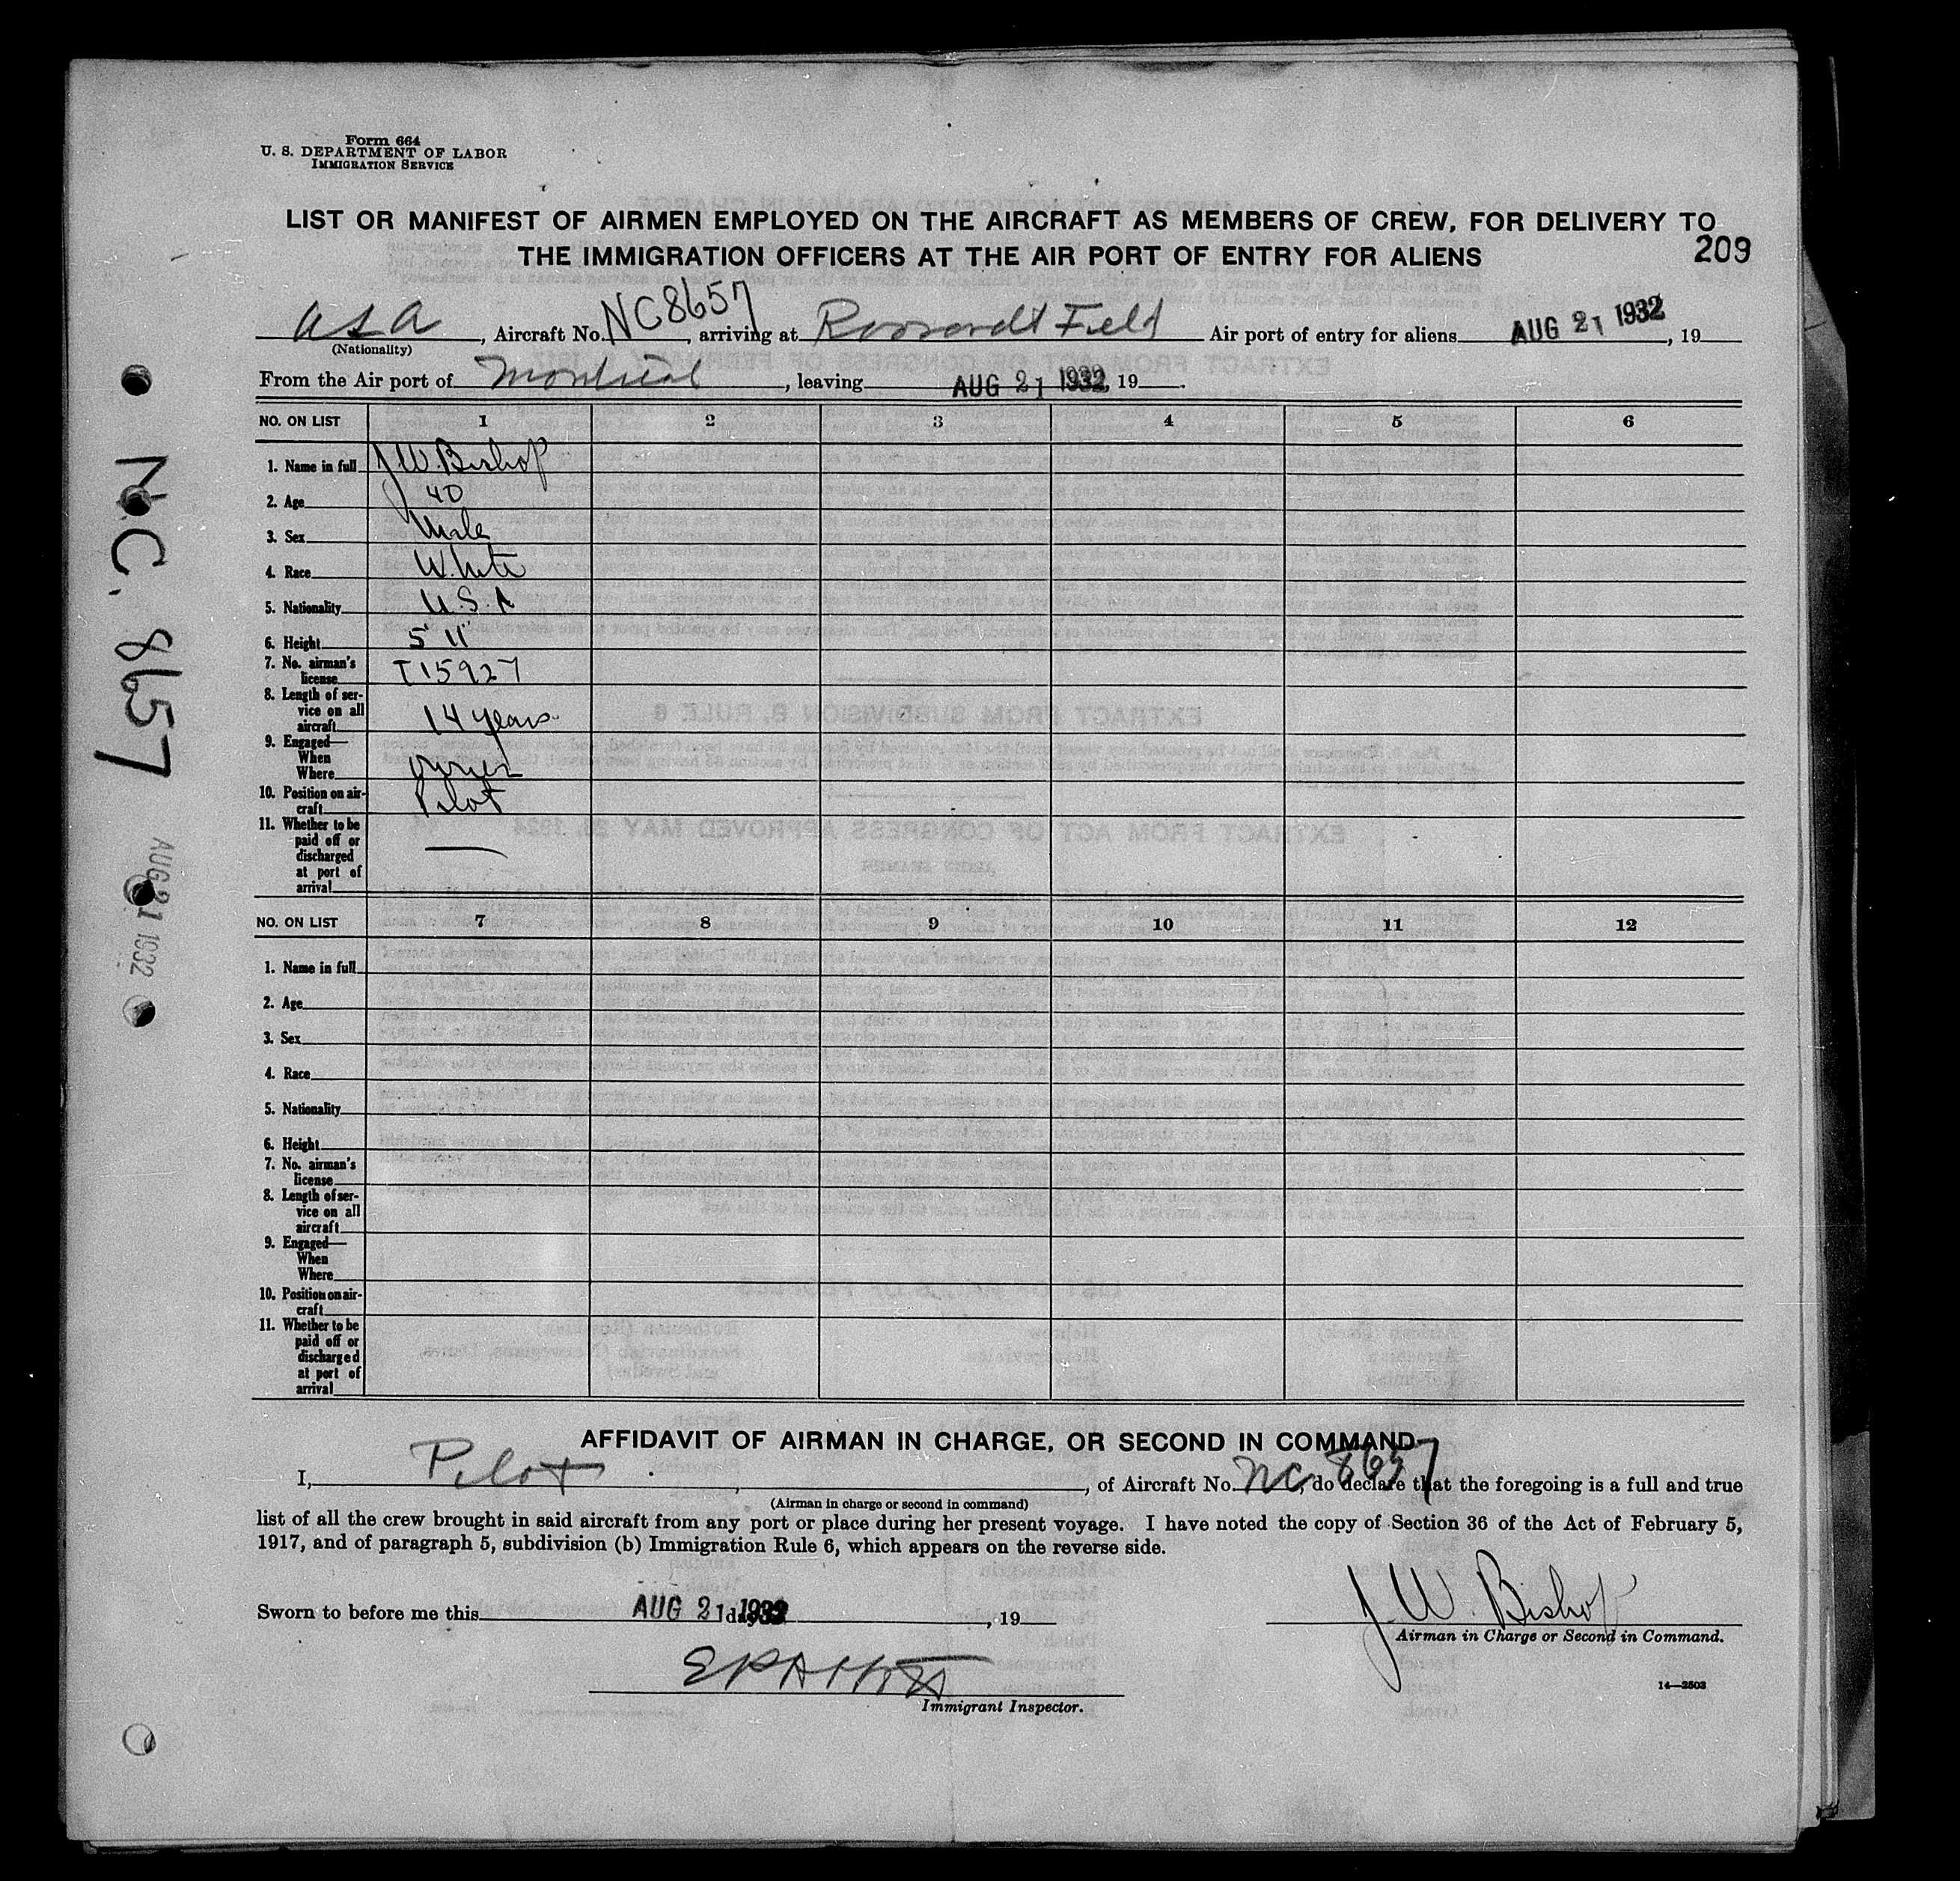 Form 664
U. S. DEPARTMENT OF LABOR
IMMIGRATION SERVICE
LIST OR MANIFEST OF AIRMEN EMPLOYED ON THE AIRCRAFT AS MEMBERS OF CREW, FOR DELIVERY TO
THE IMMIGRATION OFFICERS AT THE AIR PORT OF ENTRY FOR ALIENS
209
USA, Aircraft No. NC8657, arriving at Roosevelt Field Air port of entry for aliens AUG 21 1932, 19
(Nationality)
From the Air port of Montreal, leaving AUG 21 1932, 19 .
NO. ON LIST 1 2 3 4 5 6
1. Name in full J.W. Bishop
2. Age 40
3. Sex Male
4. Race White
5. Nationality U.S.A
6. Height 5' 11"
7. No. airman's
license T15927
8. Length of ser-
vice on all
aircraft 14 years
9. Engaged—
When
Where owner
10. Position on air-
craft Pilot
11. Whether to be
paid off or
discharged
at port of
arrival —
NO. ON LIST 7 8 9 10 11 12
1. Name in full
2. Age
3. Sex
4. Race
5. Nationality
6. Height
7. No. airman's
license
8. Length of ser-
vice on all
aircraft
9. Engaged—
When
Where
10. Position on air-
craft
11. Whether to be
paid off or
discharged
at port of
arrival
AFFIDAVIT OF AIRMAN IN CHARGE, OR SECOND IN COMMAND
I, Pilot, , of Aircraft No. NC 8657, do declare that the foregoing is a full and true
(Airman in charge or second in command)
list of all the crew brought in said aircraft from any port or place during her present voyage. I have noted the copy of Section 36 of the Act of February 5,
1917, and of paragraph 5, subdivision (b) Immigration Rule 6, which appears on the reverse side.
Sworn to before me this AUG 21 1932, 19
J. W. Bishop
Airman in Charge or Second in Command.
Immigrant Inspector.
14—2503
N.C. 8657
AUG 21 1932